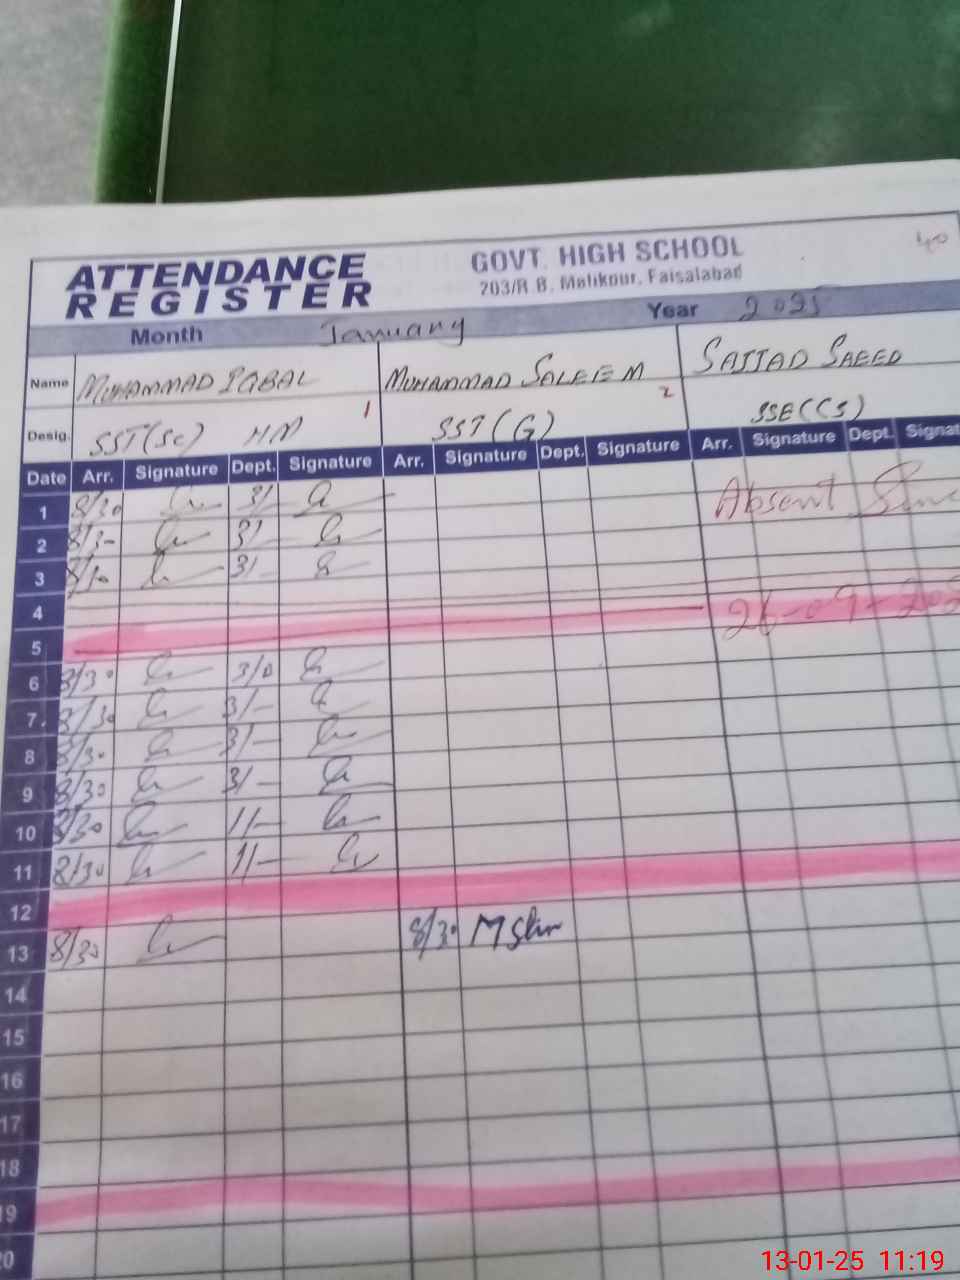 40
ATTENDANCE REGISTER
GOVT. HIGH SCHOOL
203/R.B. Malikpur, Faisalabad
Month January Year 2025
Name MUHAMMAD IQBAL MUHAMMAD SALEEM SAJJAD SAEED
1 2
Desig. SST(SC) HM SST(G) SSE(CS)
Date Arr. Signature Dept. Signature Arr. Signature Dept. Signature Arr. Signature Dept. Signat
1 8/30 3/- Absent Since
2 8/30 3/-
3 8/30 3/-
4 26-09-202
5
6 8/30 3/0
7. 8/30 3/-
8 8/30 3/-
9 8/30 3/-
10 8/30 1/-
11 8/30 1/-
12
13 8/30 8/30
14
15
16
17
18
19
20
13-01-25 11:19